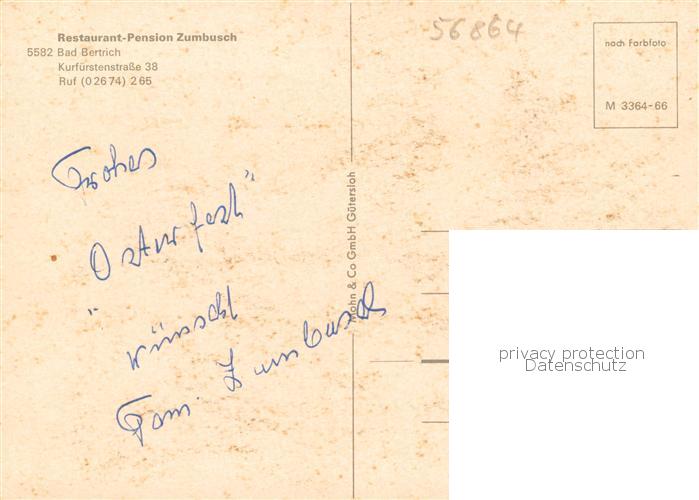 Restaurant-Pension Zumbusch
5582 Bad Bertrich
Kurfürstenstraße 38
Ruf (02674) 265
56864
nach Farbfoto
M 3364-66
Mohn & Co GmbH Gütersloh
Frohes
Osterfest"
"
wünscht
Fam. Zumbusch
privacy protection
Datenschutz